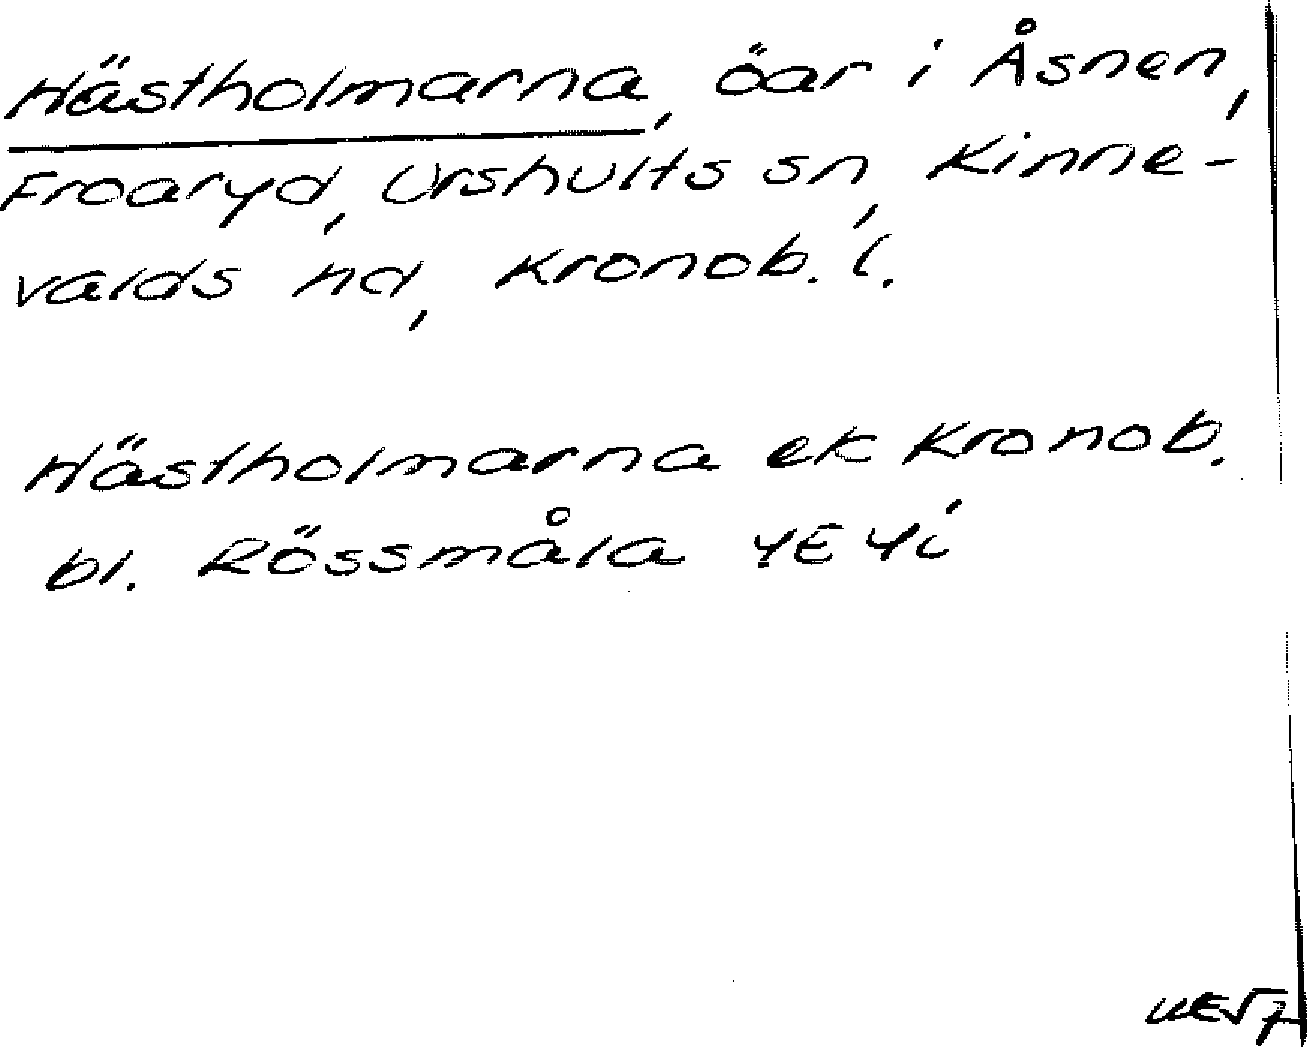 Hästholmarna, öar i Åsnen,
Froaryd, Urshults sn, Kinne-
valds hd, Kronob. l.
Hästholmarna ek Kronob.
bl. Rössmåla 4E4i